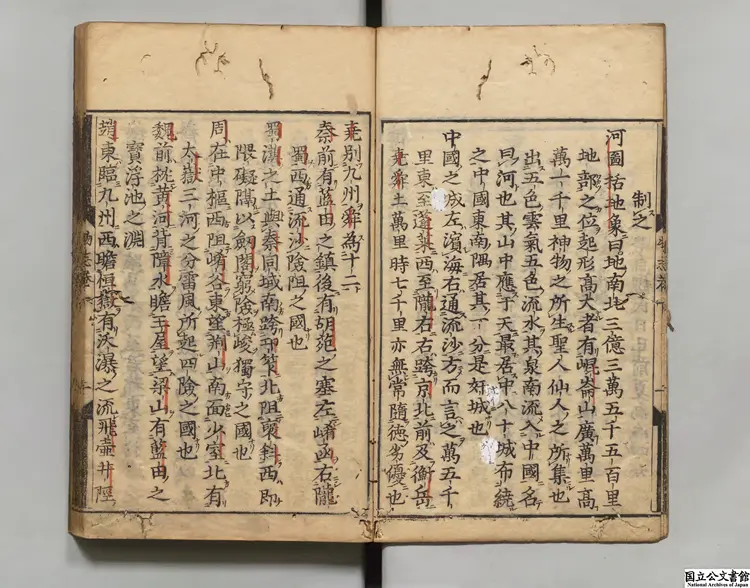 制之
河圖括地象曰地南北三億三萬五千五百里
地部之位起形高大者有崐崘山廣萬里高
萬一千里神物之所生聖人仙人之所集也
出五色雲氣五色流水其泉南流入中國名
曰河也其山中應于天最居中八十城布繞
之中國東南隅居其一分是奸城也
中國之城左濱海右通流沙方而言之萬五千
里東至蓬萊西至隴右右跨京北前及衡岳
堯舜土萬里時七千里亦無常隨德劣優也
堯別九州舜為十二
秦前有藍田之鎮後有胡苑之塞左崤函右隴
蜀西通流沙險阻之國也
蜀漢之土與秦同域南跨邛筰北阻褒斜西即
隈礙隔以劔閣窮險極峻獨守之國也
周在中樞西阻崤谷東望荊山南面少室北有
太嶽三河之分雷風所起四險之國也
魏前枕黃河背漳水瞻王屋望梁山有藍田之
寶浮池之淵
趙東臨九州西瞻恒嶽有沃瀑之流飛壺井陘
国立公文書館
National Archives of Japan